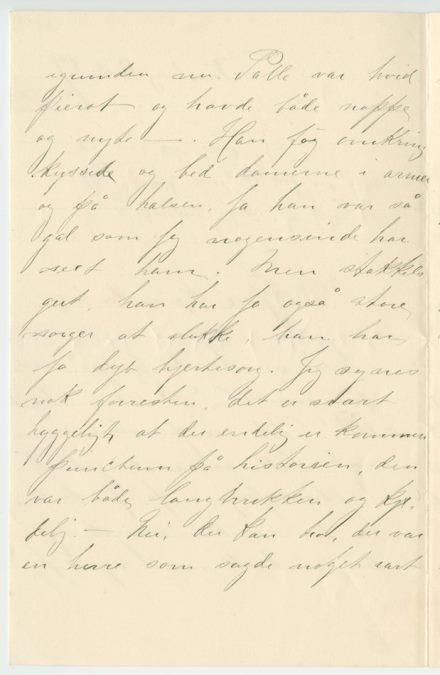 igjennem nu. Palle var hvid
pierot og havde både nappe
og nyde —. Han føg omkring
kyssede og bed damerne i armen
og på halsen. Ja han var så
gal som jeg nogensinde har
seet ham. Men stakkels
gut, han har jo også store
sorger at slukke, han har
jo dybt hjertesorg. Jeg synes
nok forresten, det er svært
hyggeligt, at der endelig er kommen
punctum på historien, den
var både langtrukken og
kjedelig. — Nei, du kan tro, der var
en herre som sagde noget rart